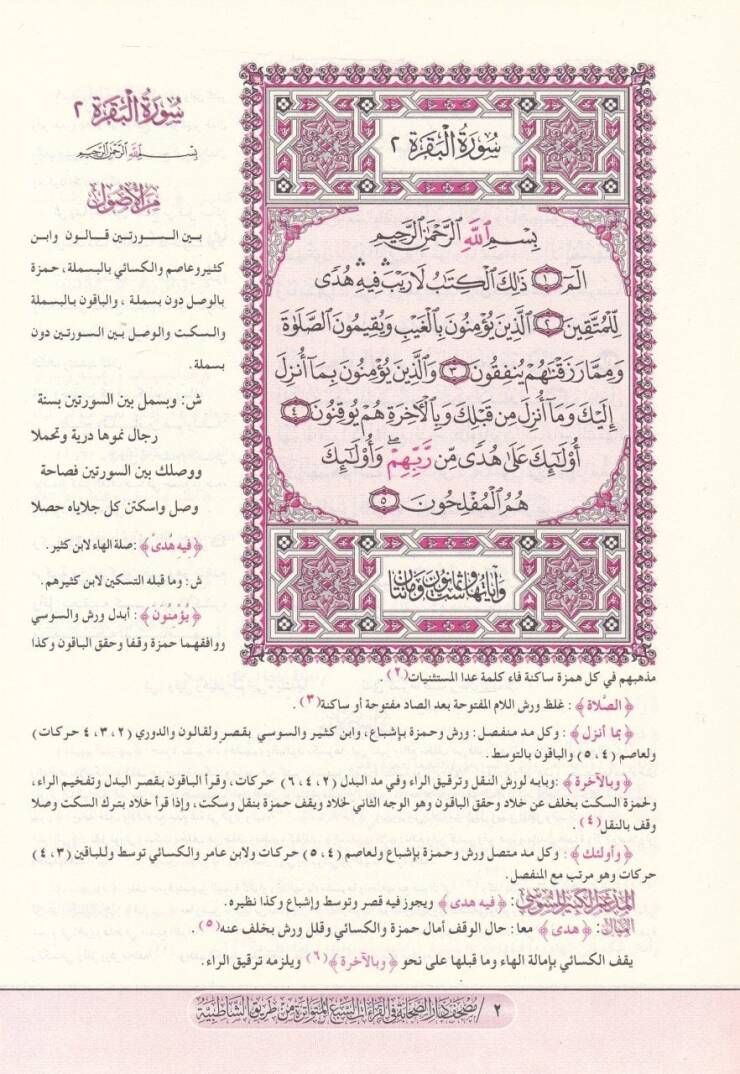 سورة البقرة ٢
بسم الله الرحمن الرحيم
الٓمٓ ١ ذَٰلِكَ ٱلْكِتَٰبُ لَا رَيْبَ ۛ فِيهِ ۛ هُدًى
لِّلْمُتَّقِينَ ٢ ٱلَّذِينَ يُؤْمِنُونَ بِٱلْغَيْبِ وَيُقِيمُونَ ٱلصَّلَوٰةَ
وَمِمَّا رَزَقْنَٰهُمْ يُنفِقُونَ ٣ وَٱلَّذِينَ يُؤْمِنُونَ بِمَآ أُنزِلَ
إِلَيْكَ وَمَآ أُنزِلَ مِن قَبْلِكَ وَبِٱلْءَاخِرَةِ هُمْ يُوقِنُونَ ٤
أُو۟لَٰٓئِكَ عَلَىٰ هُدًى مِّن رَّبِّهِمْ ۖ وَأُو۟لَٰٓئِكَ
هُمُ ٱلْمُفْلِحُونَ ٥
وآياتها ست وثمانون ومائتان
سورة البقرة ٢
بسم الله الرحمن الرحيم
من الأصول
بين السورتين قالون وابن
كثير وعاصم والكسائي بالبسملة، حمزة
بالوصل دون بسملة ، والباقون بالبسملة
والسكت والوصل بين السورتين دون
بسملة.
ش: وبسمل بين السورتين بسنة
رجال نموها درية وتحملا
ووصلك بين السورتين فصاحة
وصل واسكتن كل جلاياه حصلا
﴿فيه هدى﴾: صلة الهاء لابن كثير.
ش: وما قبله التسكين لابن كثيرهم.
﴿يُؤْمنُون﴾: أبدل ورش والسوسي
ووافقهما حمزة وقفا وحقق الباقون وكذا
مذهبهم في كل همزة ساكنة فاء كلمة عدا المستثنيات(٢) .
﴿الصَّلاة﴾ : غلظ ورش اللام المفتوحة بعد الصاد مفتوحة أو ساكنة(٣) .
﴿بما أنزل﴾ : وكل مد منفصل: ورش وحمزة بإشباع، وابن كثير والسوسي بقصر ولقالون والدوري (٢، ٣، ٤ حركات)
ولعاصم (٤، ٥) والباقون بالتوسط.
﴿وبالآخرة﴾ :وبابه لورش النقل وترقيق الراء وفي مد البدل (٢، ٤، ٦) حركات، وقرأ الباقون بقصر البدل وتفخيم الراء،
ولحمزة السكت بخلف عن خلاد وحقق الباقون وهو الوجه الثاني لخلاد ويقف حمزة بنقل وسكت، وإذا قرأ خلاد بترك السكت وصلا
وقف بالنقل(٤) .
﴿وأولئك﴾ : وكل مد متصل ورش وحمزة بإشباع ولعاصم (٤، ٥) حركات ولابن عامر والكسائي توسط وللباقين (٣، ٤)
حركات وهو مرتب مع المنفصل.
المدغم الكبير للسوسي: ﴿فيه هدى﴾ ويجوز فيه قصر وتوسط وإشباع وكذا نظيره.
الممال: ﴿هدى﴾ معا: حال الوقف أمال حمزة والكسائي وقلل ورش بخلف عنه(٥) .
يقف الكسائي بإمالة الهاء وما قبلها على نحو ﴿وبالآخرة﴾(٦) ويلزمه ترقيق الراء.
٢ / مصحف دار الصحابة في القراءات السبع المتواترة من طريق الشاطبية